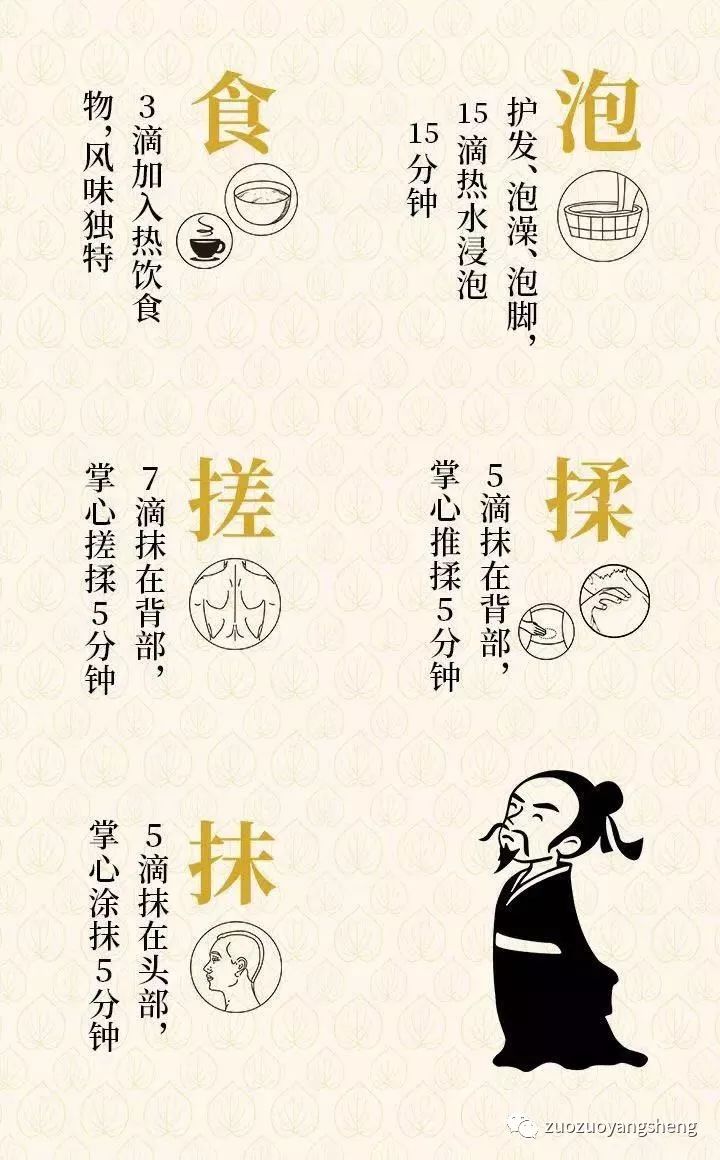 泡
护发、泡澡、泡脚，
15滴热水浸泡
15分钟
食
3滴加入热饮食
物，风味独特
揉
5滴抹在背部，
掌心推揉5分钟
搓
7滴抹在背部，
掌心搓揉5分钟
抹
5滴抹在头部，
掌心涂抹5分钟
zuozuoyangsheng